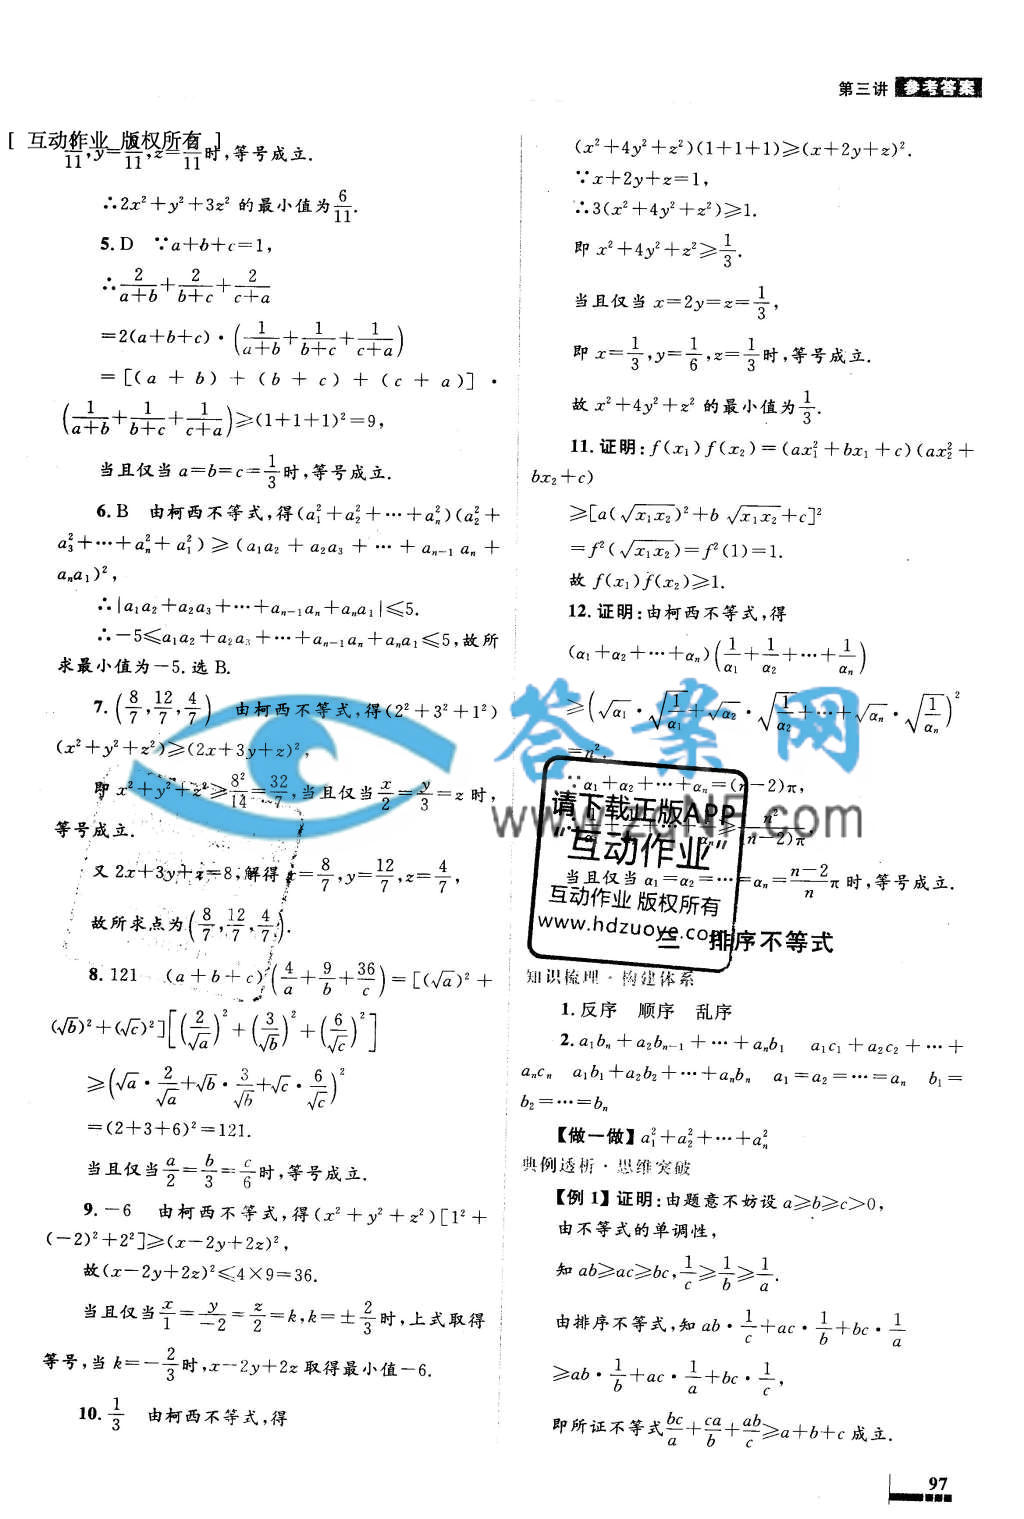 第三讲 参考答案
[ 互动作业 版权所有 ]
11,y=/11,z=/11时,等号成立.
∴2x²+y²+3z² 的最小值为6/11.
5.D ∵a+b+c=1,
∴2/(a+b)+2/(b+c)+2/(c+a)
=2(a+b+c)·(1/(a+b)+1/(b+c)+1/(c+a))
=[(a+b)+(b+c)+(c+a)]·
(1/(a+b)+1/(b+c)+1/(c+a))≥(1+1+1)²=9,
当且仅当 a=b=c=1/3时,等号成立.
6.B 由柯西不等式,得(a₁²+a₂²+⋯+aₙ²)(a₂²+
a₃²+⋯+aₙ²+a₁²)≥(a₁a₂+a₂a₃+⋯+aₙ₋₁aₙ+
aₙa₁)²,
∴|a₁a₂+a₂a₃+⋯+aₙ₋₁aₙ+aₙa₁|≤5.
∴-5≤a₁a₂+a₂a₃+⋯+aₙ₋₁aₙ+aₙa₁≤5,故所
求最小值为-5.选 B.
7.(8/7,12/7,4/7) 由柯西不等式,得(2²+3²+1²)
(x²+y²+z²)≥(2x+3y+z)²,
即 x²+y²+z²≥8²/14=32/7,当且仅当x/2=y/3=z时,
等号成立.
又 2x+3y+z=8,解得x=8/7,y=12/7,z=4/7,
故所求点为(8/7,12/7,4/7).
8.121 (a+b+c)(4/a+9/b+36/c)=[(√a)²+
(√b)²+(√c)²][(2/√a)²+(3/√b)²+(6/√c)²]
≥(√a·2/√a+√b·3/√b+√c·6/√c)²
=(2+3+6)²=121.
当且仅当a/2=b/3=c/6时,等号成立.
9.-6 由柯西不等式,得(x²+y²+z²)[1²+
(-2)²+2²]≥(x-2y+2z)²,
故(x-2y+2z)²≤4×9=36.
当且仅当x/1=y/-2=z/2=k,k=±2/3时,上式取得
等号,当 k=-2/3时,x-2y+2z 取得最小值-6.
10.1/3 由柯西不等式,得
(x²+4y²+z²)(1+1+1)≥(x+2y+z)².
∵x+2y+z=1,
∴3(x²+4y²+z²)≥1.
即 x²+4y²+z²≥1/3.
当且仅当 x=2y=z=1/3,
即 x=1/3,y=1/6,z=1/3时,等号成立.
故 x²+4y²+z² 的最小值为1/3.
11.证明:f(x₁)f(x₂)=(ax₁²+bx₁+c)(ax₂²+
bx₂+c)
≥[a(√x₁x₂)²+b√x₁x₂+c]²
=f²(√x₁x₂)=f²(1)=1.
故 f(x₁)f(x₂)≥1.
12.证明:由柯西不等式,得
(α₁+α₂+⋯+αₙ)(1/α₁+1/α₂+⋯+1/αₙ)
≥(√α₁·√(1/α₁)+√α₂·√(1/α₂)+⋯+√αₙ·√(1/αₙ))²
=n².
∵α₁+α₂+⋯+αₙ=(n-2)π,
≥n²/(n-2)π
当且仅当 α₁=α₂=⋯=αₙ=(n-2)/n π 时,等号成立.
答案网
www.zqNF.com
请下载正版APP
“互动作业”
互动作业 版权所有
www.hdzuoye.com
三 排序不等式
知识梳理·构建体系
1.反序 顺序 乱序
2.a₁bₙ+a₂bₙ₋₁+⋯+aₙb₁ a₁c₁+a₂c₂+⋯+
aₙcₙ a₁b₁+a₂b₂+⋯+aₙbₙ a₁=a₂=⋯=aₙ b₁=
b₂=⋯=bₙ
【做一做】a₁²+a₂²+⋯+aₙ²
典例透析·思维突破
【例 1】证明:由题意不妨设 a≥b≥c>0,
由不等式的单调性,
知 ab≥ac≥bc,1/c≥1/b≥1/a.
由排序不等式,知 ab·1/c+ac·1/b+bc·1/a
≥ab·1/b+ac·1/a+bc·1/c,
即所证不等式bc/a+ca/b+ab/c≥a+b+c 成立.
97